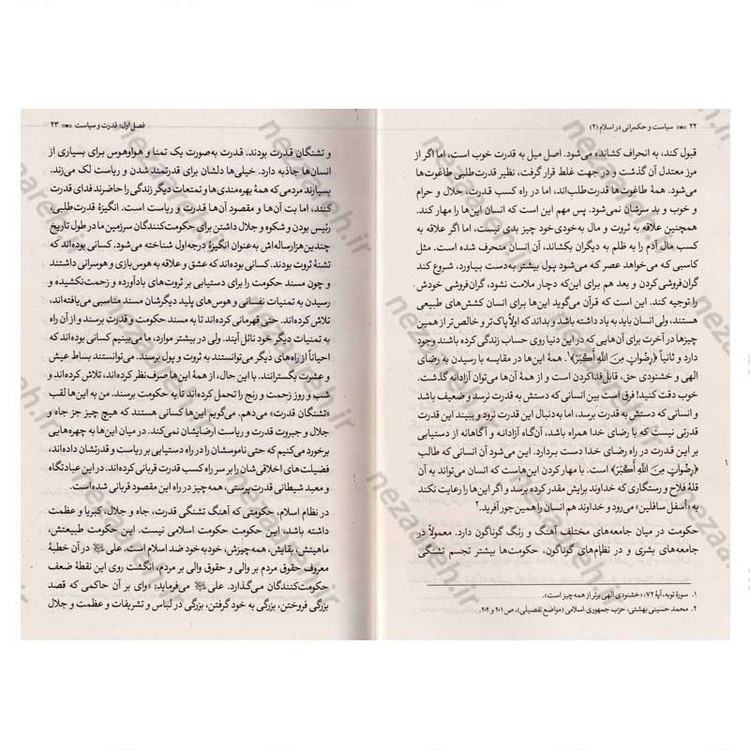 ۲۲ سیاست و حکمرانی در اسلام (۲)
قبول کند، به انحراف کشانده می‌شود. اصل میل به قدرت خوب است، اما اگر از
مرز معتدل آن گذشت و در جهت غلط قرار گرفت، نظیر قدرت‌طلبی طاغوت‌ها
می‌شود. همهٔ طاغوت‌ها قدرت‌طلب‌اند، اما در راه کسب قدرت، حلال و حرام
و خوب و بد سرشان نمی‌شود. پس مهم این است که انسان این‌ها را مهار کند.
همچنین علاقه به ثروت و مال به‌خودی‌خود چیز بدی نیست، اما اگر علاقه به
کسب مال آدم را به ظلم به دیگران بکشاند، آن انسان منحرف شده است. مثل
کاسبی که می‌خواهد عصر که می‌شود پول بیشتر به‌دست بیاورد، شروع کند
گران‌فروشی کردن و بعد هم برای این‌که دچار ملامت نشود، گران‌فروشی خودش
را توجیه کند. این است که قرآن می‌گوید این‌ها برای انسان کشش‌های طبیعی
هستند، ولی انسان باید به یاد داشته باشد و بداند که اولاً پاک‌تر و خالص‌تر از همین
چیزها در آخرت برای آن‌هایی که در این دنیا روی حساب زندگی کرده باشند وجود
دارد و ثانیاً ﴿رِضْوَانٌ مِنَ اللَّهِ أَكْبَرُ﴾۱. همهٔ این‌ها در مقایسه با رسیدن به رضای
الهی و خشنودی حق، قابل فدا کردن است و از همهٔ آن‌ها می‌توان آزادانه گذشت.
خوب دقت کنید! فرق است بین انسانی که دستش به قدرت نرسد و ضعیف باشد
و انسانی که دستش به قدرت برسد، اما به‌دنبال این قدرت نرود و ببیند این قدرت
قدرتی نیست که با رضای خدا همراه باشد، آن‌گاه آزادانه و آگاهانه از دستیابی
به این قدرت در راه رضای خدا دست بردارد. این می‌شود آن انسانی که طالب
﴿رِضْوَانٌ مِنَ اللَّهِ أَكْبَرُ﴾ است. با مهار کردن این‌هاست که انسان می‌تواند به آن
قلهٔ فلاح و رستگاری که خداوند برایش مقدر کرده برسد و اگر این‌ها را رعایت نکند
به «أسفل سافلین» می‌رود و خداوند هم انسان را همین‌جور آفرید.۲
حکومت در میان جامعه‌های مختلف آهنگ و رنگ گوناگون دارد. معمولاً در
جامعه‌های بشری و در نظام‌های گوناگون، حکومت‌ها بیشتر تجسم تشنگی
۱. سورهٔ توبه، آیهٔ ۷۲؛ «خشنودی الهی برتر از همه چیز است».
۲. محمد حسینی بهشتی، حزب جمهوری اسلامی (مواضع تفصیلی)، ص ۲۰۱ و ۲۰۲.
فصل اول: قدرت و سیاست ۲۳
و تشنگان قدرت بودند. قدرت به‌صورت یک تمنا و هواوهوس برای بسیاری از
انسان‌ها جاذبه دارد. خیلی‌ها دلشان برای قدرتمند شدن و ریاست لک می‌زند.
بسیارند مردمی که همهٔ بهره‌مندی‌ها و تمتعات دیگر زندگی را حاضرند فدای قدرت
کنند، اما بت آن‌ها و مقصود آن‌ها قدرت و ریاست است. انگیزهٔ قدرت‌طلبی،
رئیس بودن و شکوه و جلال داشتن برای حکومت‌کنندگان سرزمین ما در طول تاریخ
چندین‌هزارساله‌اش به‌عنوان انگیزهٔ درجه‌اول شناخته می‌شود. کسانی بوده‌اند که
تشنهٔ ثروت بودند. کسانی بوده‌اند که عشق و علاقه به هوس‌بازی و هوسرانی داشتند
و چون مسند حکومت را برای دستیابی بر ثروت‌های بادآورده و زحمت‌نکشیده و
رسیدن به تمنیات نفسانی و هوس‌های پلید دیگرشان مسند مناسبی می‌یافته‌اند،
تلاش کرده‌اند. حتی قهرمانی کرده‌اند تا به مسند حکومت و قدرت برسند و از آن راه
به تمنیات دیگر خود نائل آیند. ولی در بیشتر موارد، ما می‌بینیم کسانی بوده‌اند که
احیاناً از راه‌های دیگر می‌توانستند به ثروت و پول برسند. می‌توانستند بساط عیش
و عشرت بگسترانند. با این حال، از همهٔ این‌ها صرف‌نظر کرده‌اند، تلاش کرده‌اند،
شب و روز زحمت و رنج را تحمل کرده‌اند تا به حکومت برسند. من به این‌ها لقب
«تشنگان قدرت» می‌دهم. می‌گویم این‌ها کسانی هستند که هیچ چیز جز جاه و
جلال و جبروت قدرت و ریاست ارضایشان نمی‌کند. در میان این‌ها به چهره‌هایی
برخورد می‌کنیم که حتی ناموسشان را در راه دستیابی بر ریاست و قدرتشان داده‌اند،
فضیلت‌های اخلاقی‌شان را بر سر راه کسب قدرت قربانی کرده‌اند. در این عبادتگاه
و معبد شیطانی قدرت‌پرستی، همه‌چیز در راه این مقصود قربانی شده است.
در نظام اسلام، حکومتی که آهنگ تشنگی قدرت، جاه و جلال، کبریا و عظمت
داشته باشد، این حکومت حکومت اسلامی نیست. این حکومت طبیعتش،
ماهیتش، بقایش، همه‌چیزش، خودبه‌خود ضد اسلام است. علی در آن خطبهٔ
معروف حقوق مردم بر والی و حقوق والی بر مردم، انگشت روی این نقطهٔ ضعف
حکومت‌کنندگان می‌گذارد. علی می‌فرماید: «وای بر آن حاکمی که قصد
بزرگی فروختن، بزرگی به خود گرفتن، بزرگی در لباس و تشریفات و عظمت و جلال
nezareh.ir